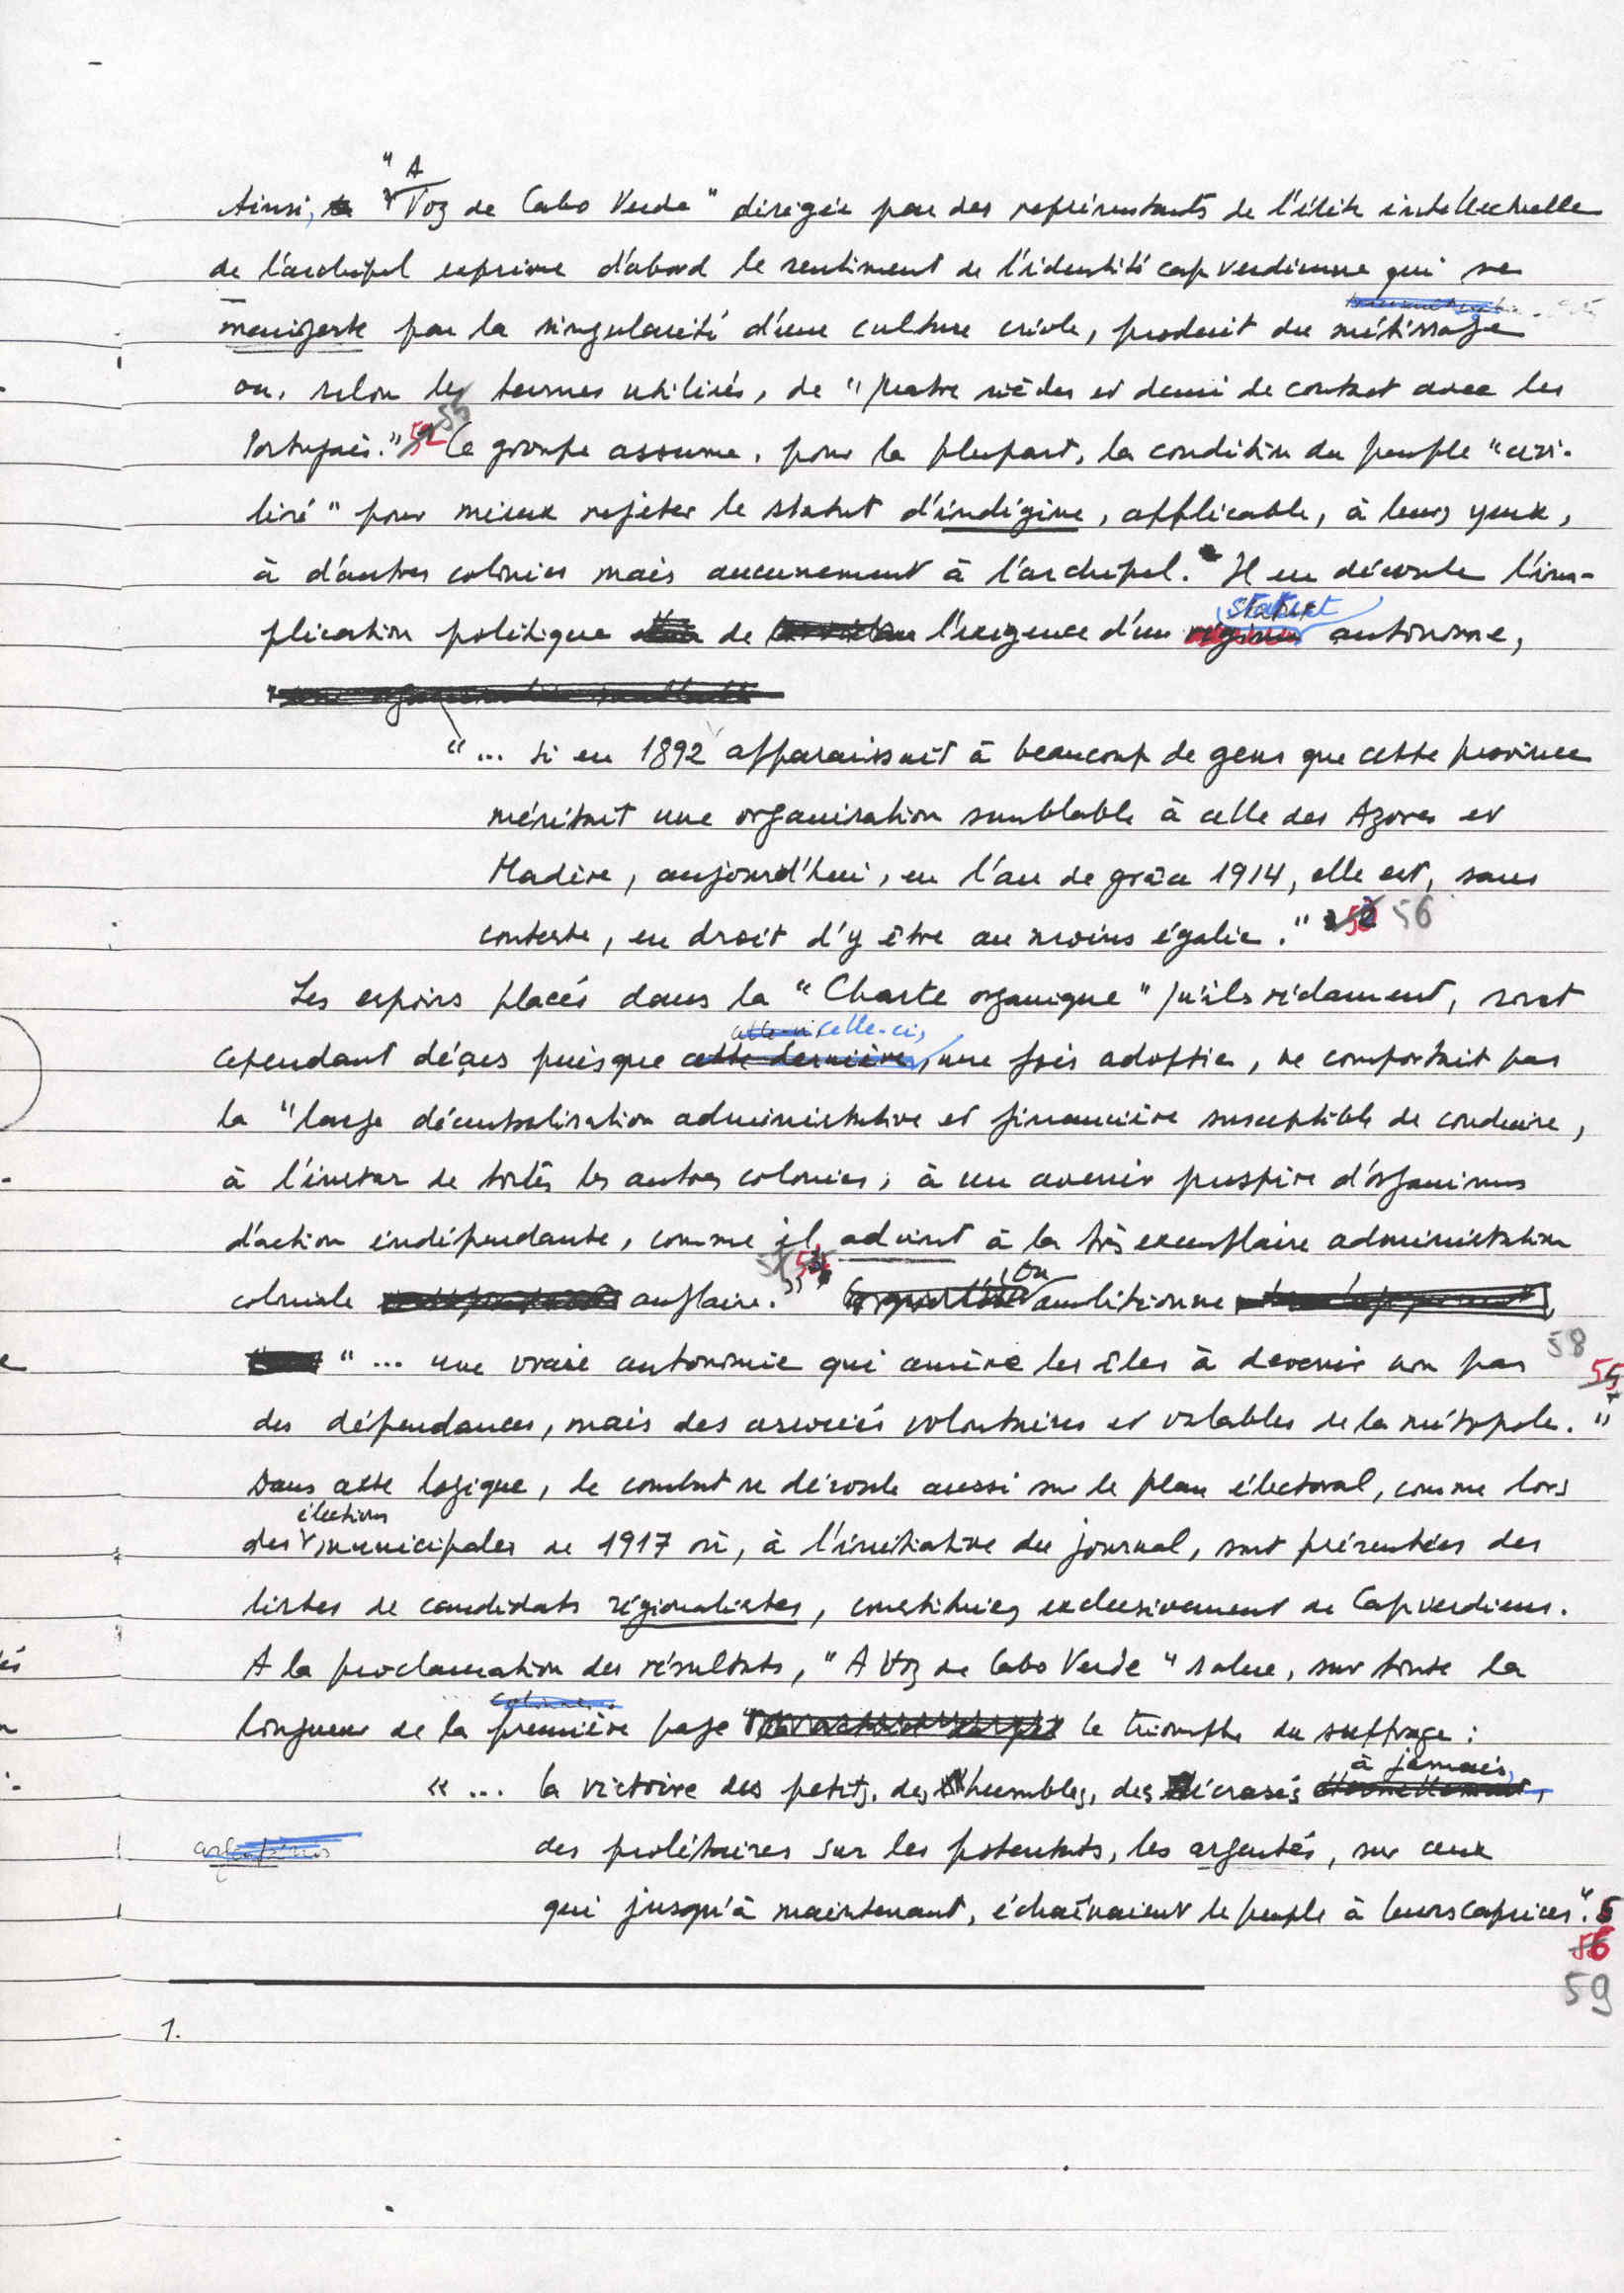 Ainsi, "A Voz de Cabo Verde" dirigée par des représentants de l'élite intellectuelle
de l'archipel exprime d'abord le sentiment de l'identité capverdienne qui se
manifeste par la singularité d'une culture criole, produit du métissage
ou, selon les termes utilisés, de "quatre siècles et demi de contact avec les
Portugais." 52 55 Ce groupe assume, pour la plupart, la condition du peuple "civi-
lisé" pour mieux rejeter le statut d'indigène, applicable, à leurs yeux,
à d'autres colonies mais aucunement à l'archipel. Il en découle l'im-
plication politique de l'exigence d'un statut autonome,
"... si en 1892 apparaissait à beaucoup de gens que cette province
méritait une organisation semblable à celle des Azores et
Madère, aujourd'hui, en l'an de grâce 1914, elle est, sans
conteste, en droit d'y être au moins égalée." 56
Les espoirs placés dans la "Charte organique" qu'ils réclament, sont
celle-ci,
cependant déçus puisque cette dernière, une fois adoptée, ne comportait pas
la "large décentralisation administrative et financière susceptible de conduire,
à l'instar de toutes les autres colonies, à un avenir prospère d'organismes
d'action indépendante, comme il advint à la très exemplaire administration
coloniale anglaise." On ambitionne
"... une vraie autonomie qui amène les îles à devenir non pas 58
55
des dépendances, mais des associés volontaires et valables de la métropole."
Dans cette logique, le combat se déroule aussi sur le plan électoral, comme lors
élections
des municipales de 1917 où, à l'initiative du journal, sont présentées des
listes de candidats régionalistes, constituées exclusivement de Capverdiens.
A la proclamation des résultats, "A Voz de Cabo Verde" salue, sur toute la
longueur de la première page le triomphe du suffrage :
à jamais,
"... la victoire des petits, des humbles, des écrasés
des prolétaires sur les potentats, les argentés, sur ceux
qui jusqu'à maintenant, échaînaient le peuple à leurs caprices." 5
56
59
1.